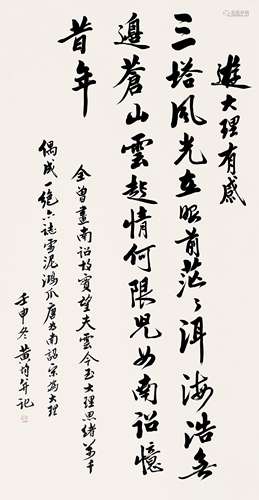 遊大理有感
三塔風光在眼前茫々洱海浩無
邊蒼山雲起情何限兒女南詔憶
昔年
余曾畫南詔故實望夫雲今至大理思緒萬千
偶成一絕以誌雪泥鴻爪唐為南詔宋為大理
壬申冬黃 并記